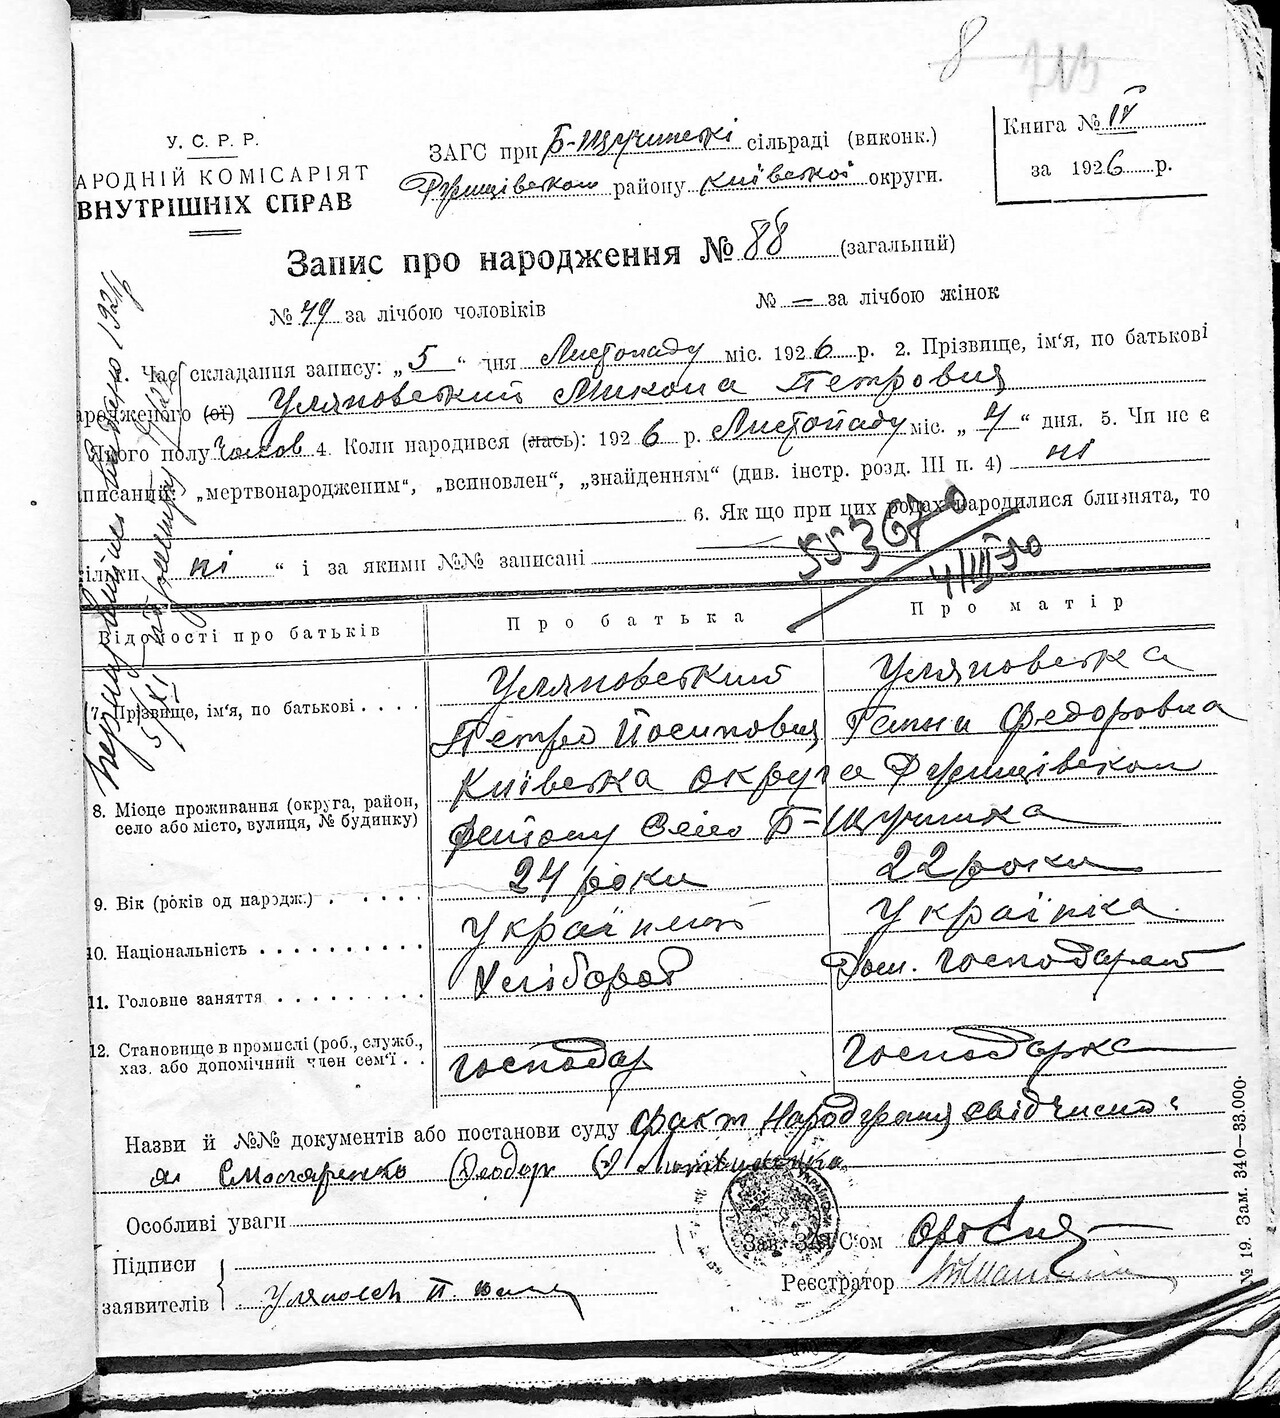 8
У. С. Р. Р.
АРОДНІЙ КОМІСАРІЯТ
ВНУТРІШНІХ СПРАВ
ЗАГС при Б-Щучинскі сільраді (виконк.)
Ржищівском району Київської округи.
Книга № IV
за 1926 р.
Запис про народження № 88 (загальний)
№ 49 за лічбою чоловіків
№ — за лічбою жінок
1. Час складання запису: „5“ дня Листопаду міс. 1926 р. 2. Прізвище, ім'я, по батькові
ародженого (ої) Уляновський Микола Петрович
Якого полу Чолов 4. Коли народився (лась): 1926 р. Листопаду міс. „4“ дня. 5. Чи не є
аписаний: „мертвонародженим“, „всиновлен“, „знайденням“ (див. інстр. розд. III п. 4) ні
6. Як що при цих родах народилися близнята, то
ільки ні “ і за якими №№ записані
553670
4/III-50
Відомості про батьків
Про батька
Про матір
7. Прізвище, ім'я, по батькові . . . .
Уляновський
Петро Йосипович
Уляновська
Ганна Федоровна
8. Місце проживання (округа, район,
село або місто, вулиця, № будинку)
Київська округа Ржищівском
району Село Б-Щучинка
9. Вік (років од народж.) . . . . .
24 роки
22 роки
10. Національність . . . . . . . . .
Українец
Українка
11. Головне заняття . . . . . . . .
Хлібороб
Дом. господарст
12. Становище в промислі (роб., служб.,
хаз. або допомічний член сем'ї . .
господар
господарка
Назви й №№ документів або постанови суду Факт Народження свідчили:
Столяренко Теодор Литвиненко
Особливі уваги
Зав. ЗАГС'ом
Реєстратор
Підписи
заявителів
Уляновск П.
№ 19. Зам. 340—38.000.